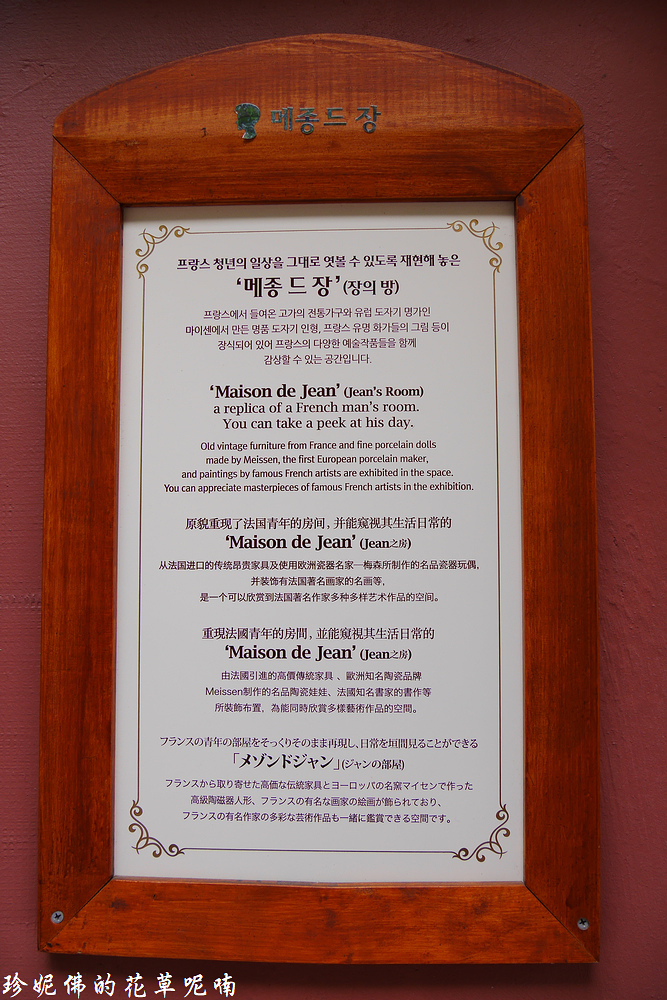 메종드장
프랑스 청년의 일상을 그대로 엿볼 수 있도록 재현해 놓은
‘메종 드 장’ (장의 방)
프랑스에서 들여온 고가의 전통가구와 유럽 도자기 명가인
마이센에서 만든 명품 도자기 인형, 프랑스 유명 화가들의 그림 등이
장식되어 있어 프랑스의 다양한 예술작품들을 함께
감상할 수 있는 공간입니다.
‘Maison de Jean’ (Jean’s Room)
a replica of a French man’s room.
You can take a peek at his day.
Old vintage furniture from France and fine porcelain dolls
made by Meissen, the first European porcelain maker,
and paintings by famous French artists are exhibited in the space.
You can appreciate masterpieces of famous French artists in the exhibition.
原貌重现了法国青年的房间, 并能窥视其生活日常的
‘Maison de Jean’ (Jean之房)
从法国进口的传统昂贵家具及使用欧洲瓷器名家─梅森所制作的名品瓷器玩偶，
并装饰有法国著名画家的名画等，
是一个可以欣赏到法国著名作家多种多样艺术作品的空间。
重現法國青年的房間, 並能窺視其生活日常的
‘Maison de Jean’ (Jean之房)
由法國引進的高價傳統家具 、歐洲知名陶瓷品牌
Meissen制作的名品陶瓷娃娃、法國知名書家的書作等
所裝飾布置，為能同時欣賞多樣藝術作品的空間。
フランスの青年の部屋をそっくりそのまま再現し、日常を垣間見ることができる
「メゾンドジャン」(ジャンの部屋)
フランスから取り寄せた高価な伝統家具とヨーロッパの名窯マイセンで作った
高級陶磁器人形、フランスの有名な画家の絵画が飾られており、
フランスの有名作家の多彩な芸術作品も一緒に鑑賞できる空間です。
珍妮佛的花草呢喃